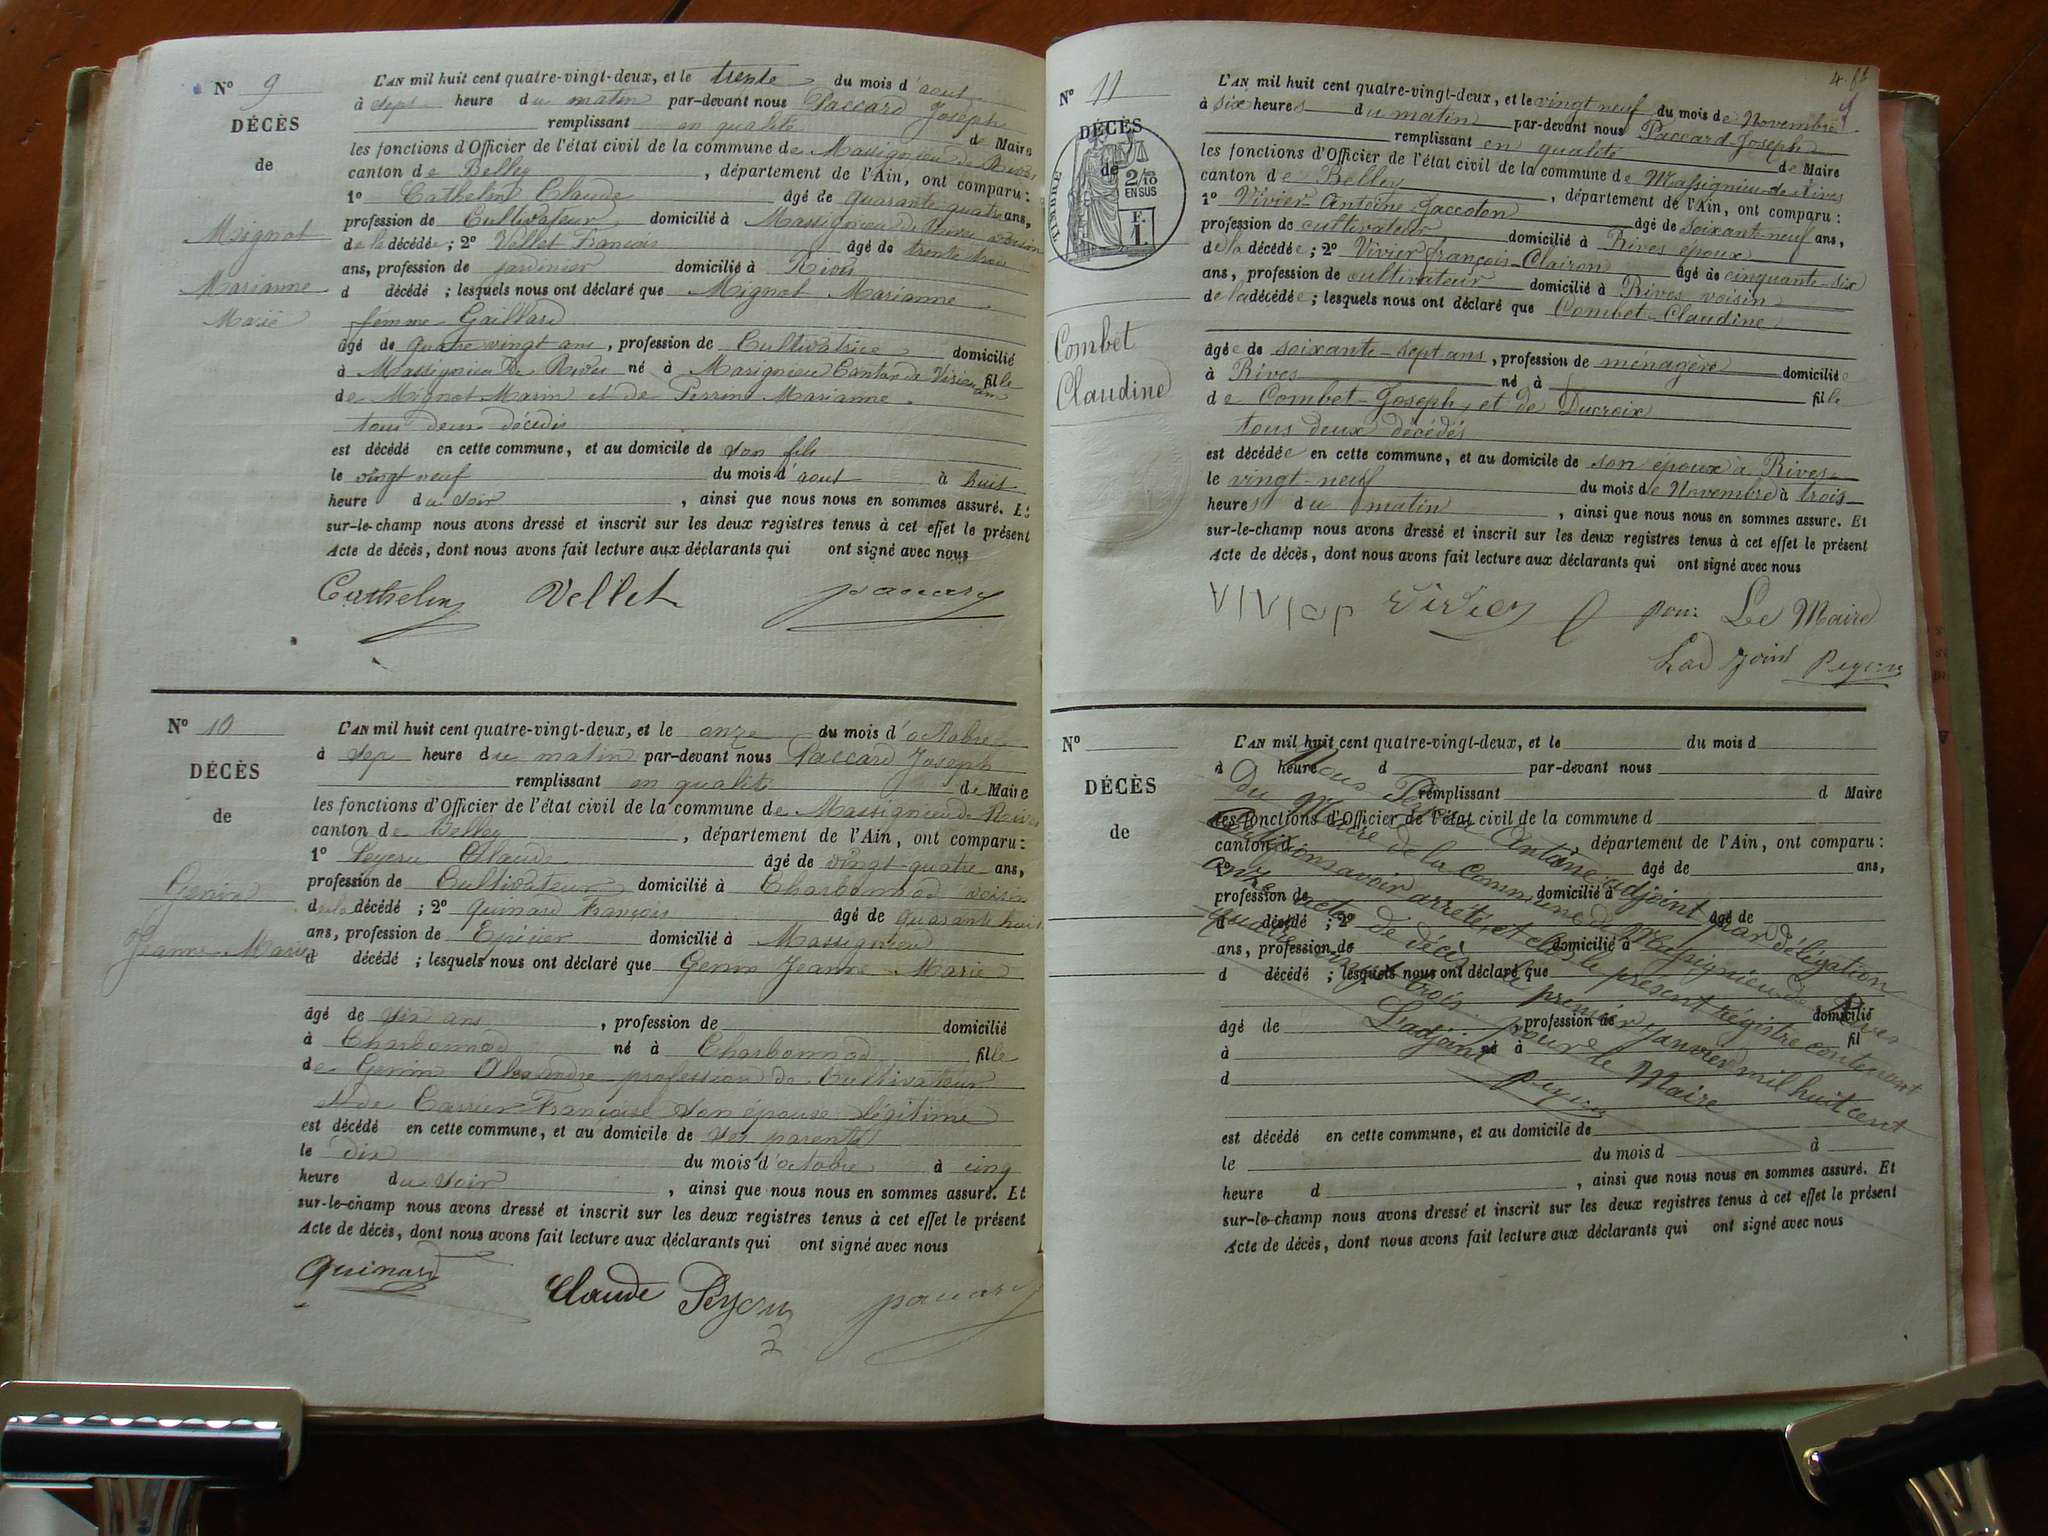 N° 9
DÉCÈS
de
Mignot
Marianne
Marie
L'AN mil huit cent quatre-vingt-deux, et le trente du mois d'aout
à sept heure du matin par-devant nous Paccard Joseph
remplissant en qualité de Maire
les fonctions d'Officier de l'état civil de la commune de Massignieu de Rives
canton de Belley, département de l'Ain, ont comparu :
1° Cathelin Claude âgé de quarante quatre ans,
profession de Cultivateur domicilié à Massignieu de Rives voisin
de la décédée ; 2° Vellet François âgé de trente trois
ans, profession de jardinier domicilié à Rives
d décédé ; lesquels nous ont déclaré que Mignot Marianne
femme Gaillard
âgé de quatre vingt ans, profession de Cultivatrice domicilié
à Massignieu de Rives né à Marignieu Canton de fille
de Mignot Marin et de Perrin Marianne
tous deux décédés
est décédé en cette commune, et au domicile de son fils
le vingt neuf du mois d'aout à huit
heure du soir, ainsi que nous nous en sommes assuré. Et
sur-le-champ nous avons dressé et inscrit sur les deux registres tenus à cet effet le présent
Acte de décès, dont nous avons fait lecture aux déclarants qui ont signé avec nous
Cathelin Vellet paccard
N° 10
DÉCÈS
de
Genin
Jeanne-Marie
L'AN mil huit cent quatre-vingt-deux, et le onze du mois d'octobre
à sep heure du matin par-devant nous Paccard Joseph
remplissant en qualité de Maire
les fonctions d'Officier de l'état civil de la commune de Massignieu de Rives
canton de Belley, département de l'Ain, ont comparu :
1° Peycru Claude âgé de vingt-quatre ans,
profession de Cultivateur domicilié à Charbonnod voisin
de la décédé ; 2° Quinard François âgé de quarante huit
ans, profession de Epicier domicilié à Massignieu
d décédé ; lesquels nous ont déclaré que Genin Jeanne-Marie
âgé de ans, profession de domicilié
à Charbonnod né à Charbonnod fille
de Genin Alexandre profession de Cultivateur
et de Carrier Françoise son épouse légitime
est décédé en cette commune, et au domicile de ses parents
le dix du mois d'octobre à cinq
heure du soir, ainsi que nous nous en sommes assuré. Et
sur-le-champ nous avons dressé et inscrit sur les deux registres tenus à cet effet le présent
Acte de décès, dont nous avons fait lecture aux déclarants qui ont signé avec nous
Quinard Claude Peycru paccard
N° 11
DÉCÈS
de
TIMBRE
2/10
EN SUS
Combet
Claudine
L'AN mil huit cent quatre-vingt-deux, et le vingt neuf du mois de Novembre
à six heures du matin par-devant nous Paccard Joseph
remplissant en qualité de Maire
les fonctions d'Officier de l'état civil de la commune de Massignieu-de Rives
canton de Belley, département de l'Ain, ont comparu :
1° Vivier-Antoine-Jaccoton âgé de soixante-neuf ans,
profession de cultivateur domicilié à Rives époux
de la décédée ; 2° Vivier françois-Clairon âgé de cinquante-six
ans, profession de cultivateur domicilié à Rives voisin
de la décédée ; lesquels nous ont déclaré que Combet-Claudine
âgée de soixante-sept ans, profession de ménagère domiciliée
à Rives né à fille
de Combet-Joseph, et de Ducroix
tous deux décédés
est décédée en cette commune, et au domicile de son époux à Rives
le vingt-neuf du mois de Novembre à trois
heures du matin, ainsi que nous nous en sommes assuré. Et
sur-le-champ nous avons dressé et inscrit sur les deux registres tenus à cet effet le présent
Acte de décès, dont nous avons fait lecture aux déclarants qui ont signé avec nous
Vivier pour Le Maire
Lad joint Peycru
N°
DÉCÈS
de
L'AN mil huit cent quatre-vingt-deux, et le du mois d
à heure d par-devant nous
remplissant d Maire
les fonctions d'Officier de l'état civil de la commune d
canton d département de l'Ain, ont comparu :
1° âgé de ans,
profession de domicilié à
d décédé ; 2° âgé de
ans, profession de domicilié à
d décédé ; lesquels nous ont déclaré que
âgé de, profession de domicilié
à né à fil
d
est décédé en cette commune, et au domicile de
le du mois d à
heure d, ainsi que nous nous en sommes assuré. Et
sur-le-champ nous avons dressé et inscrit sur les deux registres tenus à cet effet le présent
Acte de décès, dont nous avons fait lecture aux déclarants qui ont signé avec nous
Nous Peycru Antoine adjoint par délégation
du Maire de la commune de Massignieu de Rives
avoir arrêté et clos le présent régistre contenant
onze actes de décès le premier janvier mil huit cent
quatre vingt trois.
Pour le Maire
L'adjoint
Peycru